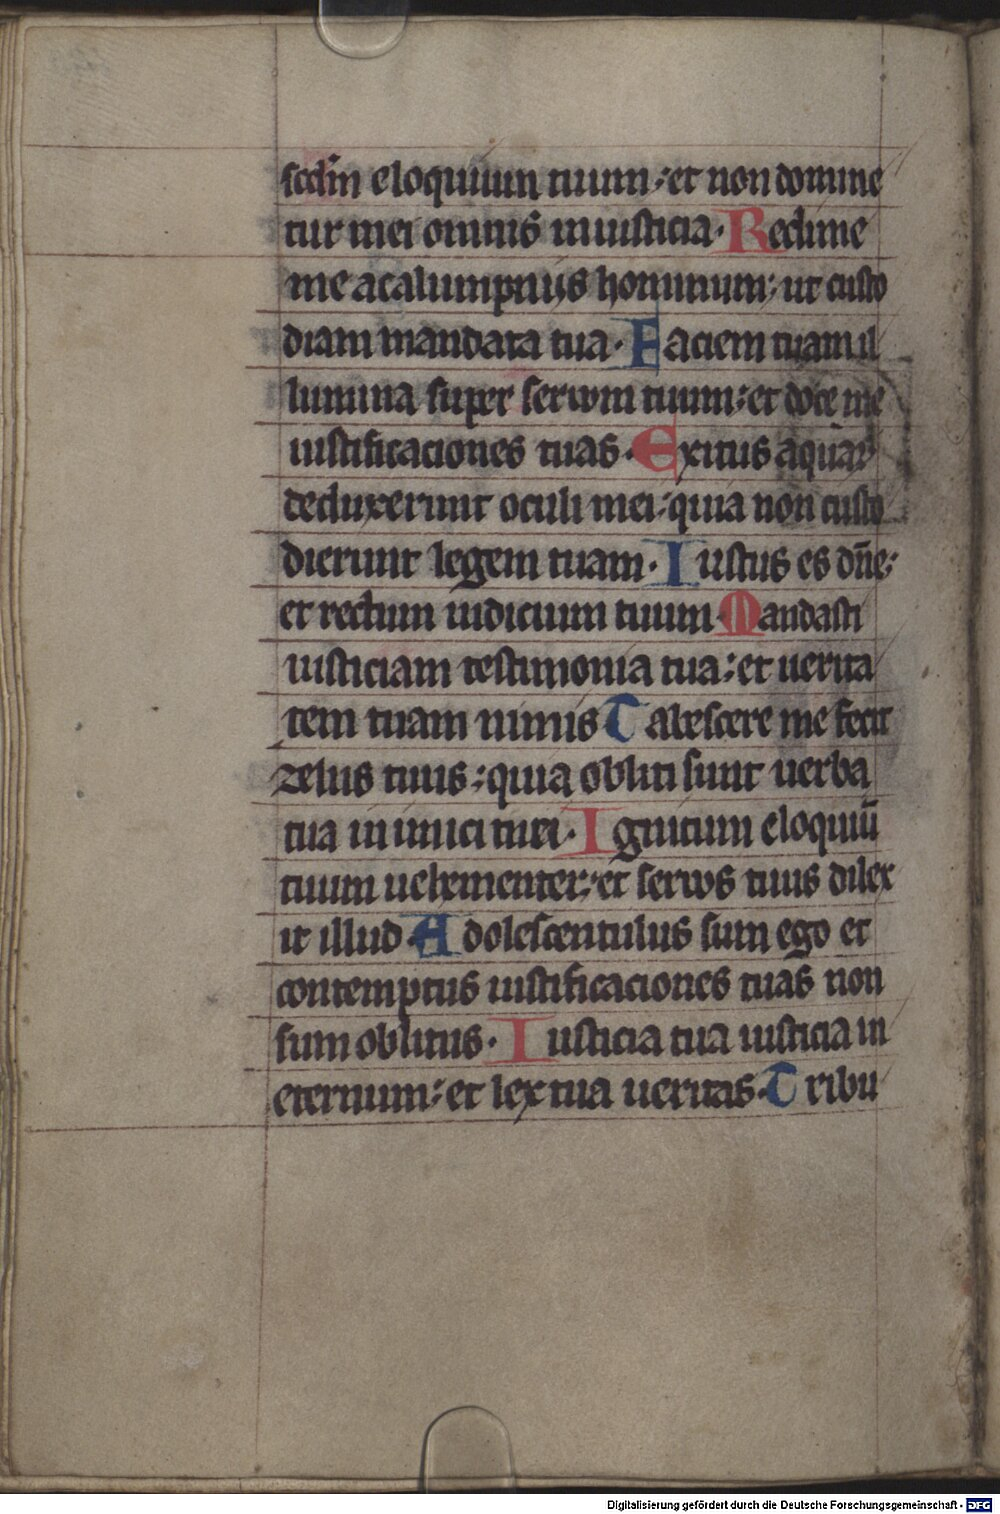 scdm eloquium tuum: et non domine
tur mei omnis iniusticia. Redime
me a calumpniis hominum: ut custo
diam mandata tua. Faciem tuam il
lumina super seruum tuum: et doce me
iustificaciones tuas. Exitus aquar
deduxerunt oculi mei: quia non custo
dierunt legem tuam. Iustus es dn̄e:
et rectum iudicium tuum Mandasti
iusticiam testimonia tua: et uerita
tem tuam nimis Tabescere me fecit
zelus tuus: quia obliti sunt uerba
tua inimici mei. Ignitum eloquiū
tuum uehementer: et seruus tuus dilex
it illud. Adolescentulus sum ego et
contemptus iustificaciones tuas non
sum oblitus. Iusticia tua iusticia in
eternum: et lex tua ueritas. Tribu
Digitalisierung gefördert durch die Deutsche Forschungsgemeinschaft - DFG